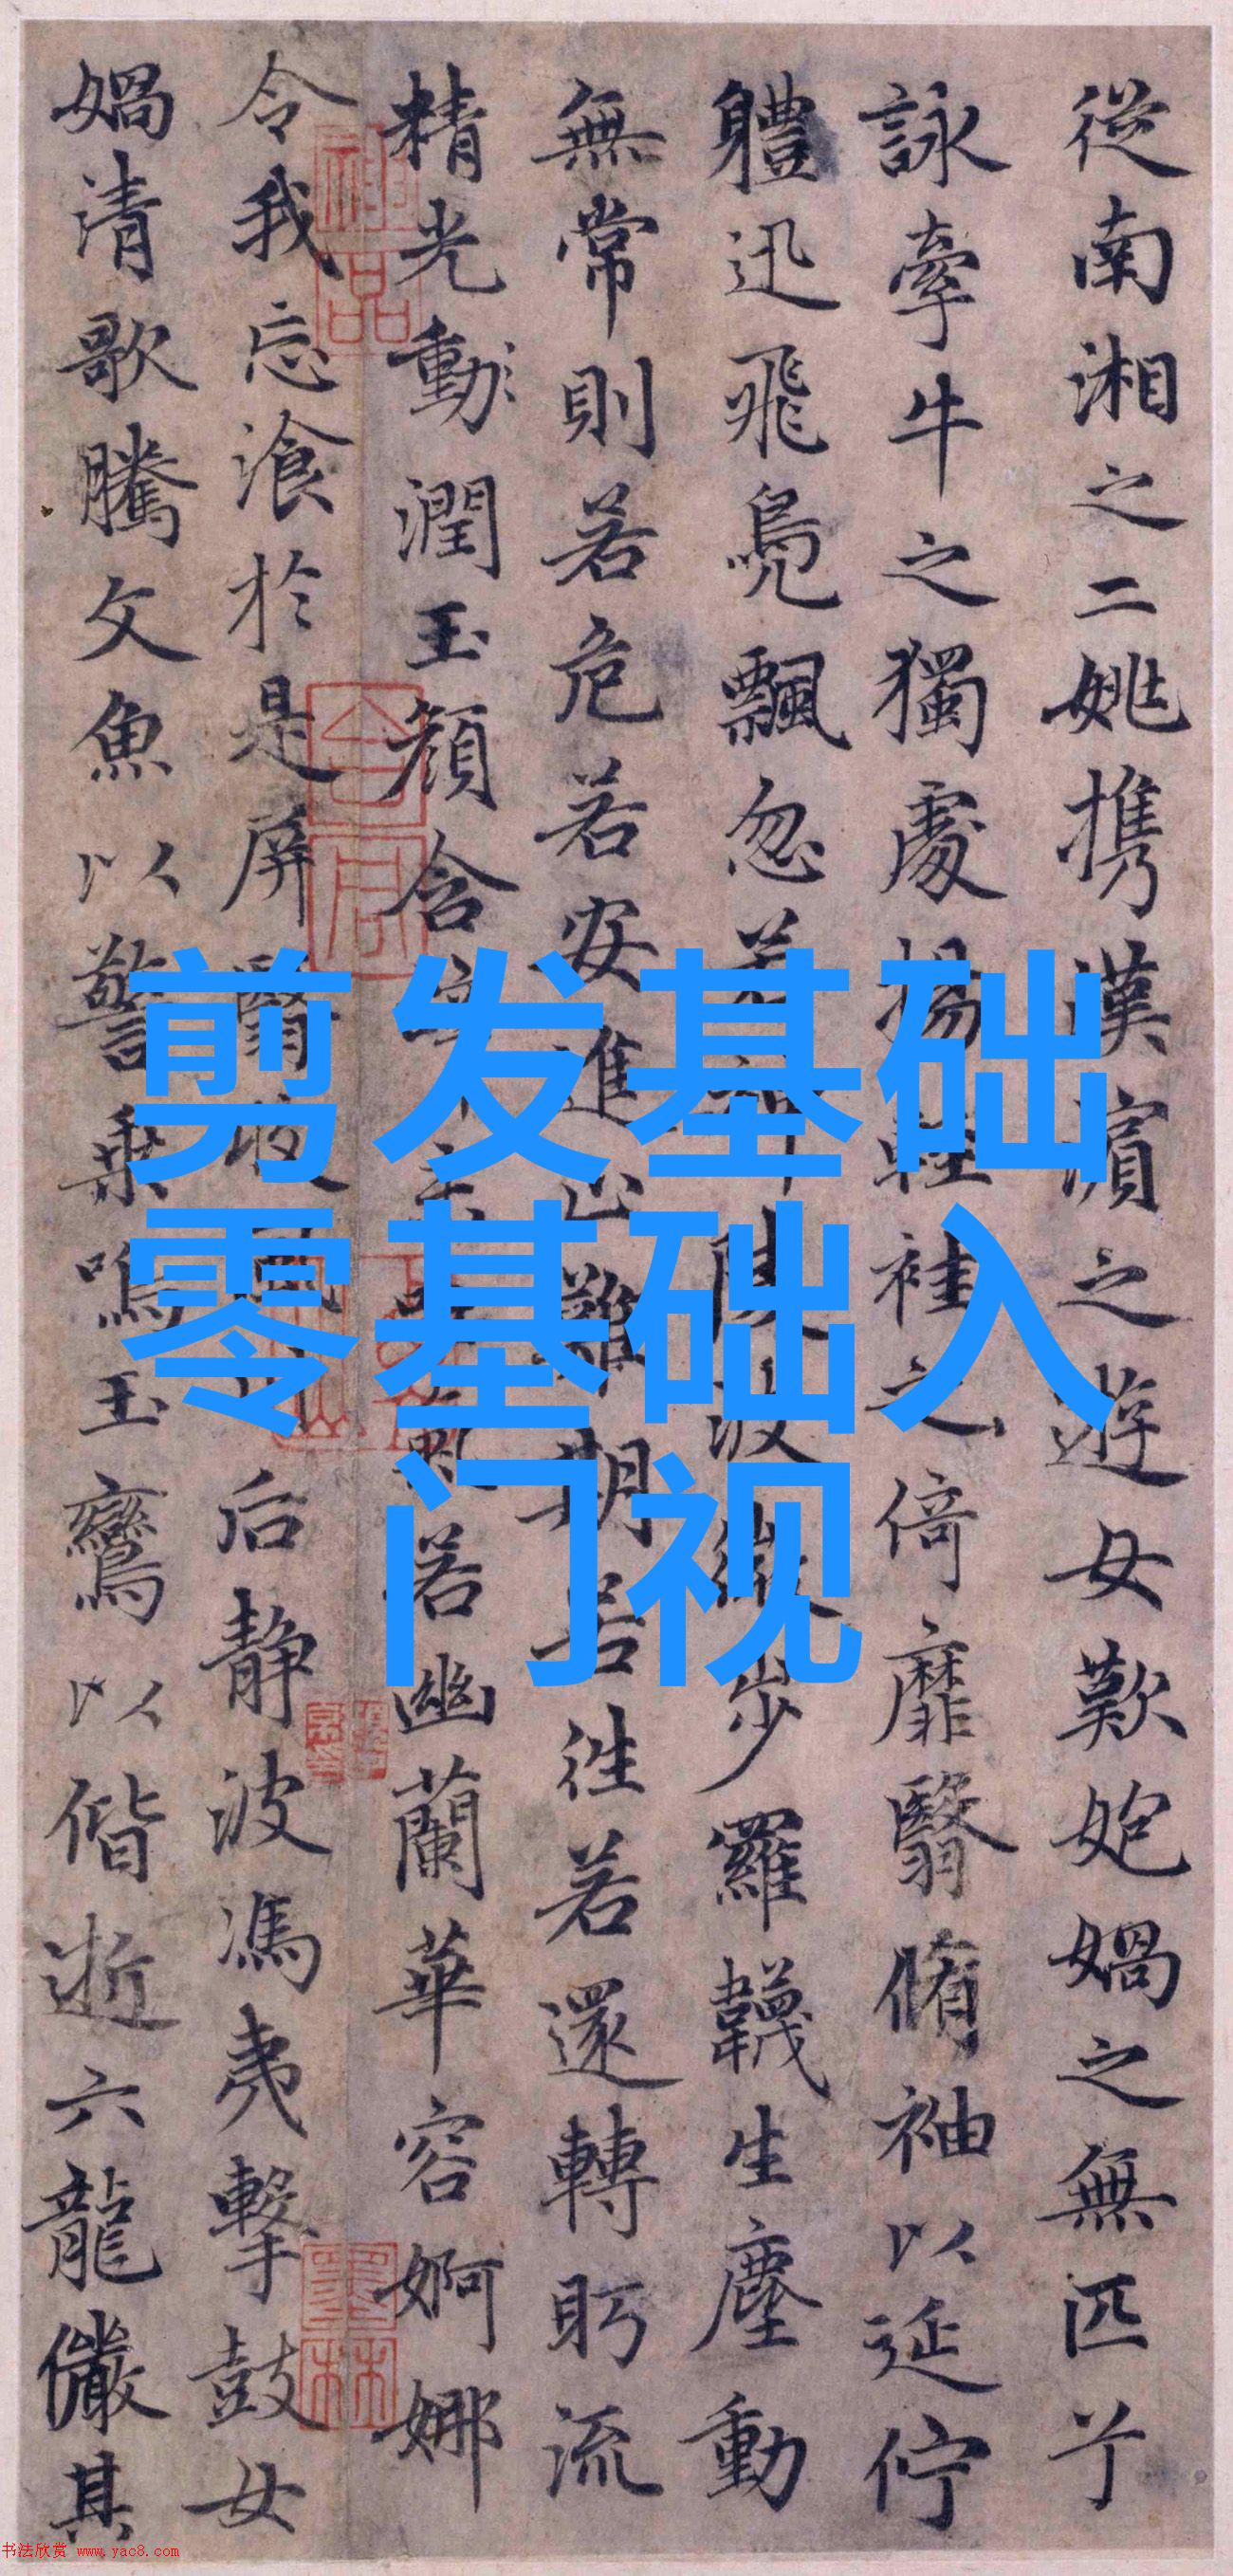 從南湘之二姚携漢濱之遊女歎妑媧之無匹兮
詠牽牛之獨處揚輕袿之倚靡翳脩袖以延佇
體迅飛鳧飄忽若神陵波微步羅韈生塵動
無常則若危若安進止難期若往若還轉眄流
精光動潤玉顏含若幽蘭華容婀娜
令我忘飡於是屏翳后靜波馮夷擊鼓女
媧清歌騰文魚以警乘鳴玉鸞以偕逝六龍儼其
剪发基础
零基础入
门视
神品
墨林
书法欣赏 www.yac8.com